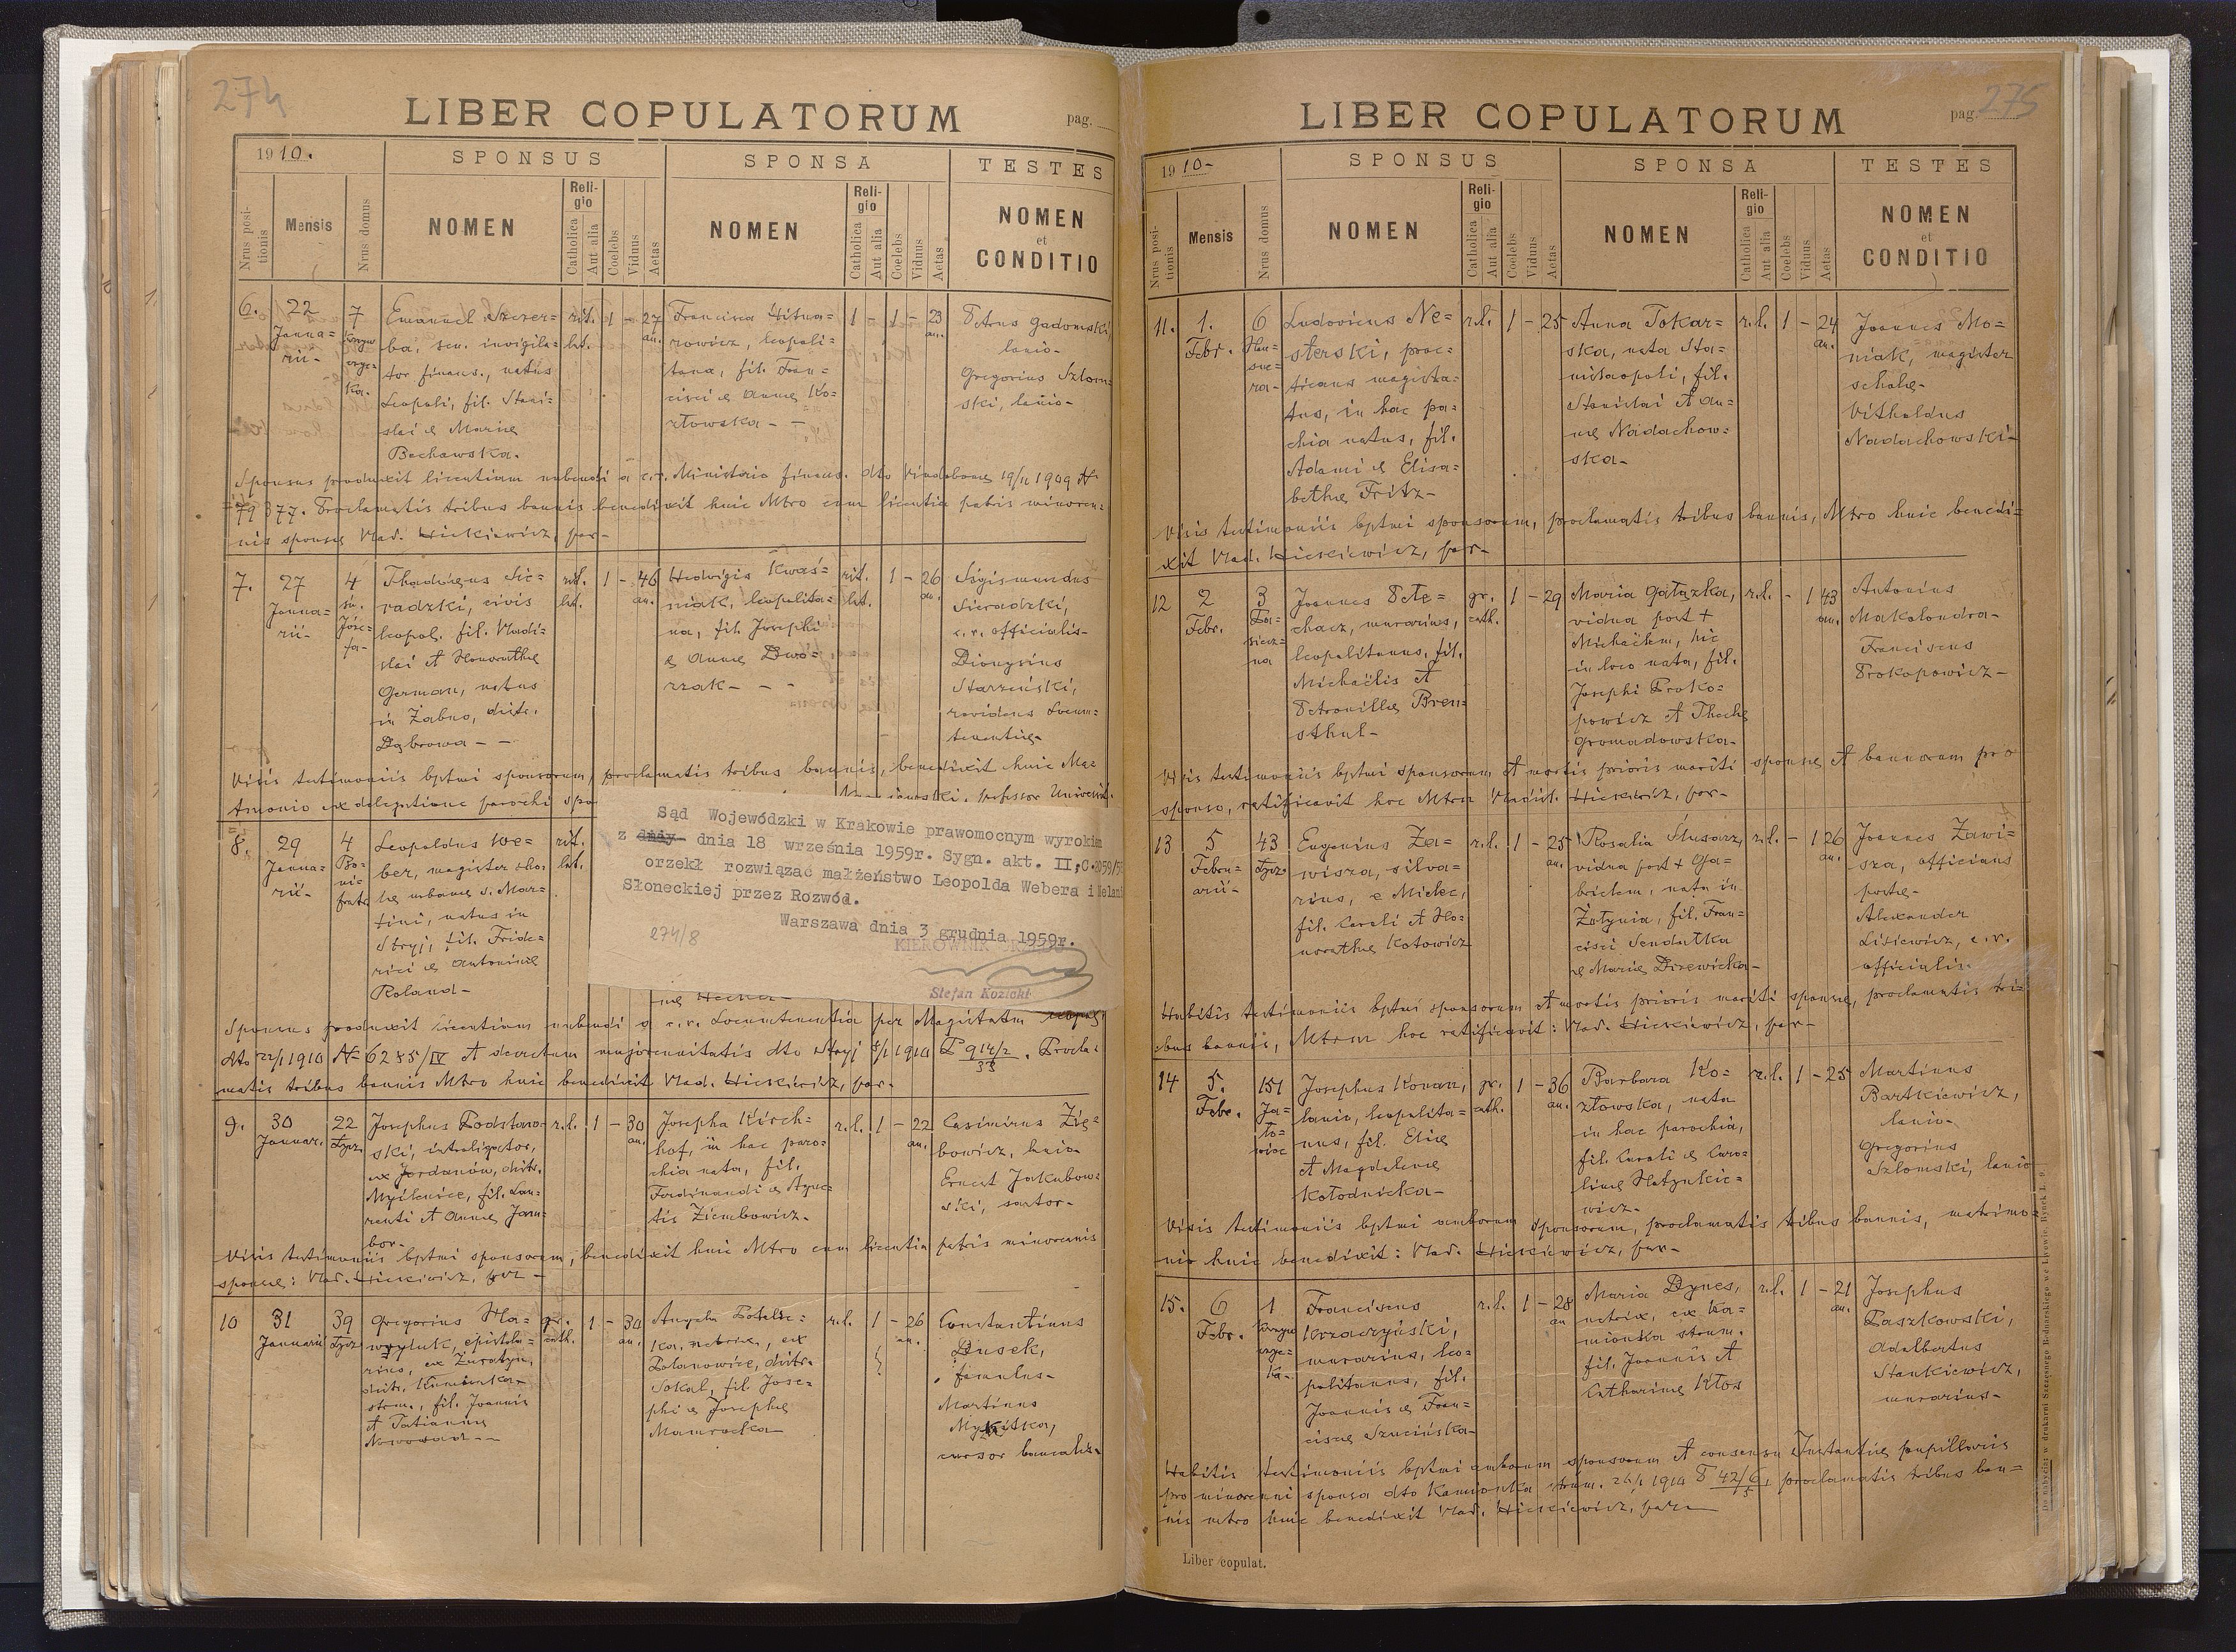 274
LIBER COPULATORUM
pag.
1910.
SPONSUS
SPONSA
TESTES
Nrus positionis
Mensis
Nrus domus
NOMEN
Religio
Catholica
Aut alia
Coelebs
Viduus
Aetas
NOMEN
Religio
Catholica
Aut alia
Coelebs
Viduus
Aetas
NOMEN
et
CONDITIO
6.
22
Janua=
rii-
7
Emanuel Szczer=
ba, sen. invigila=
tor finans., natus
Leopoli, fil. Stani=
slai & Mariæ
Bachowska.
rit.
lat.
1 - 27
an.
Francisca
rowicz, leopoli=
tana, fil. Fran=
cisci & Annæ Ko=
złowska - -
1 - 1 - 23
an.
Petrus Gadomski,
lanio-
Gregorius Szlom=
ski, lanio-
Sponsus produxit licentiam nubendi a c.r. Ministerio finans. dto Vindobonæ 19/11 1909 N
79377. Proclamatis tribus bannis benedixit huic Mtro cum licentia patris minoren=
nis sponsæ Vlad. Hickiewicz, par-
7.
27
Janua=
rii-
4
św.
Józe=
fa-
Thaddæus Sie=
radzki, civis
leopol. fil. Vladi=
slai et Honorathæ
German, natus
in Żabno, distr.
Dąbrowa - -
rit.
lat.
1 - 46
an.
Hedvigis Kwaś=
niak, leopolita=
na, fil. Josephi
& Annæ Dwo=
rzak - - -
rit.
lat.
1 - 26
an.
Sigismundus
Sieradzki,
c.r. officialis-
Dionysius
Starzeński,
providens Locum=
tenentiæ-
Visis testimoniis bptmi sponsorum, proclamatis tribus bannis, benedixit huic Ma=
trimonio ex delegatione parochi spo
professor Universit.
8.
29
Janua=
rii-
4
Bo=
ni=
fratr
Leopoldus We=
ber, magister scho=
læ urbanæ s. Mar=
tini, natus in
Stryj, fil. Fride=
rici & Antoninæ
Roland-
rit.
lat.
Sąd Wojewódzki w Krakowie prawomocnym wyrokiem
z dnia 18 września 1959r. Sygn. akt. II.C.2059/5
orzekł rozwiązać małżeństwo Leopolda Webera i Melani
Słoneckiej przez Rozwód.
Warszawa dnia 3 grudnia 1959r.
274/8
KIEROWNIK
Stefan Kozicki
Sponsus produxit licentiam nubendi a c.r. Locumtenentia per Magistratum leopol.
dto 22/1 1910 N= 6285/IV et decretum majorennitatis dto Stryj 8/1 1910 P 914/2 . Procla=
33
matis tribus bannis Mtro huic benedixit Vlad. Hickiewicz, par-
9.
30
Januar.
22
Łycz.
Josephus Podstaw=
ski, introligator,
ex Jordanów, distr.
Myślenice, fil. Lau=
renti et Annæ Jam=
bor-
r.l.
1 - 30
an.
Josepha Kirch=
hof, in hac paro=
chia nata, fil.
Ferdinandi & Agne=
tis Ziembowicz-
r.l.
1 - 22
an.
Casimirus Zię=
bowicz, lanio
Ernest Jakubow=
ski, sartor-
Visis testimoniis bptmi sponsorum, benedixit huic Mtro cum licentia patris minorennis
sponsæ: Vlad. Hickiewicz, par-
10
31
Januarii
39
Łycz.
Gregorius Ha=
wryluk,
ex Żuratyn,
distr. Kamionka
strum., fil. Joannis
et Tatianæ
Nowosad - -
gr.
cath.
1 - 30
an.
Angela
ka, netrix, ex
Polanowice, distr.
Sokal, fil Jose=
phi & Josephæ
Mamrocka
r.l.
1 - 26
an.
Constantinus
Dusek,
famulus-
Martinus
Mykitka,
cursor bancalis-
LIBER COPULATORUM
pag. 275
1910-
SPONSUS
SPONSA
TESTES
Nrus positionis
Mensis
Nrus domus
NOMEN
Religio
Catholica
Aut alia
Coelebs
Viduus
Aetas
NOMEN
Religio
Catholica
Aut alia
Coelebs
Viduus
Aetas
NOMEN
et
CONDITIO
11.
1.
Febr.
6
Hau=
sne=
ra-
Ludovicus Ne=
sterski, prac=
ticans magistra=
tus, in hac pa=
chia natus, fil.
Adami & Elisa=
bethæ Fritz-
r.l.
1 - 25
Anna Tokar=
ska, nata Sta=
nislaopoli, fil.
Stanislai et An=
næ Nadachow=
ska-
r.l.
1 - 24
an.
Joannes Mo=
niak, magister
scholæ-
Vitholdus
Nadachowski-
Visis testimoniis bptmi sponsorum, proclamatis tribus bannis, Mtro huic benedi=
xit Vlad. Hickiewicz, par-
12
2
Febr.
3
Pia=
siecz=
na
Joannes Pełe=
chacz, murarius,
leopolitanus, fil.
Michaëlis et
Petronillæ Bren=
sthul-
gr.
cath.
1 - 29
Maria Gałązka,
vidua post +
Michaëlem, hic
in loco nata, fil.
Josephi Proko=
powicz et Theclæ
Gromadowska-
r.l.
- 1 43
an.
Antonius
Makolondra-
Franciscus
Prokopowicz-
Visis testimoniis bptmi sponsorum et mortis prioris mariti sponsæ et bannorum pro
sponso, ratificavit hoc Mtrm Vladisl. Hickiewicz, par-
13
5
Febru=
arii-
43
Łycz.
Eugenius Za=
wisza, silva=
rius, e Mielec,
fil. Caroli et Ho=
norathæ Kotowicz
r.l.
1 - 25
an.
Rosalia Ślusarz,
vidua post + Ga=
brielem, nata in
Żołynia, fil. Fran=
cisci Sendułka
& Mariæ Drzewicka-
r.l.
- 1 26
an.
Joannes Zawi=
sza, officians
postæ-
Alexander
Lisiewicz, c.r.
officialis.
Habitis testimoniis bptmi sponsorum et mortis prioris mariti sponsæ, proclamatis tri=
bus bannis, Mtrm hoc ratificavit: Vlad. Hickiewicz, par-
14
5.
Febr.
151
Ja=
no=
Josephus Konan,
lanio, leopolita=
nus, fil. Eliæ
et Magdalenæ
Kołodnicka-
gr.
cath.
1 - 36
an.
Barbara Ko=
złowska, nata
in hac parochia,
fil. Caroli & Caro=
linæ Hatynkie=
wicz-
r.l.
1 - 25
Martinus
Bartkiewicz,
lanio-
Gregorius
Szlomski, lanio
Visis testimoniis bptmi amborum sponsorum, proclamatis tribus bannis, matrimo=
nio huic benedixit: Vlad. Hickiewicz, par-
15.
6
Febr.
1
Krzyw
czyc=
ka-
Franciscus
Krzaczyński,
murarius, leo=
politanus, fil.
Joannis & Fran=
ciscæ Szucińska-
r.l.
1 - 28
an
Maria Dynes,
netrix, ex Ka=
mionka strum.
fil. Joannis et
Catharinæ Kłos
r.l.
1 - 21
an.
Josephus
Paszkowski,
Adalbertus
Stankiewicz,
murarius-
Habitis testimoniis bptmi amborum sponsorum et consensu Instantiæ pupillaris
pro minorenni sponsa dto Kamionka strum. 26/1 1910 P 42/6, proclamatis tribus ban=
5
nis mtro huic benedixit Vlad. Hickiewicz, par-
Liber copulat.
Do nabycia: w drukarni Szczęsnego Bednarskiego we Lwowie, Rynek l. 9.